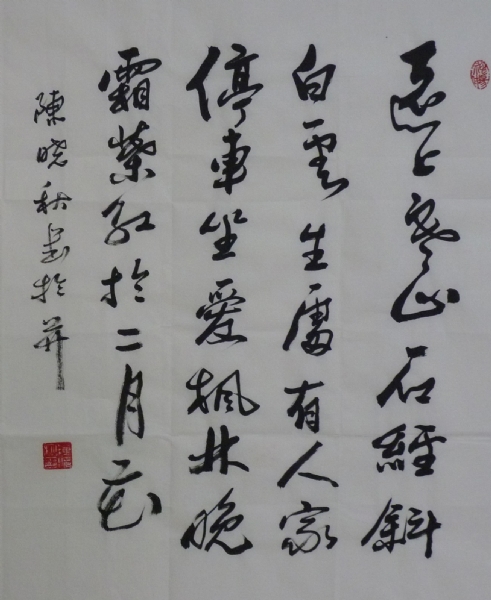 遠上寒山石經斜
白雲生處有人家
停車坐愛楓林晚
霜葉紅於二月花
陳晓秋書於并